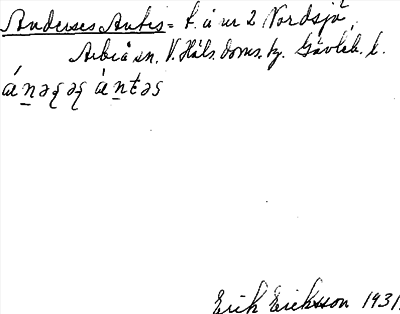 Anderses Antes = t. å nr 2 Nordsjö,
Arbrå sn. V. Häls. doms. tg. Gävleb. l.
Erik Eriksson 1931.